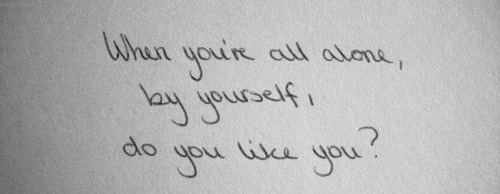 When you're all alone,
by yourself,
do you like you?